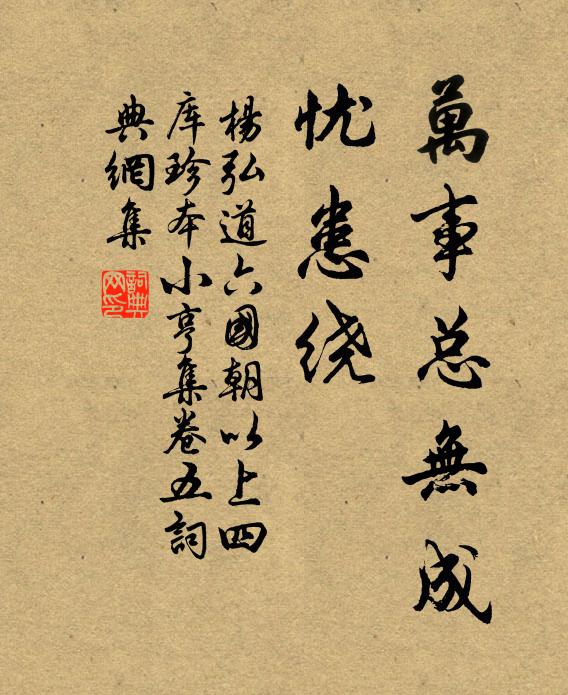 萬事总無成
忧患绕
楊弘道六國朝以上四
库珍本小亨集卷五詞
典網集
詞典网印